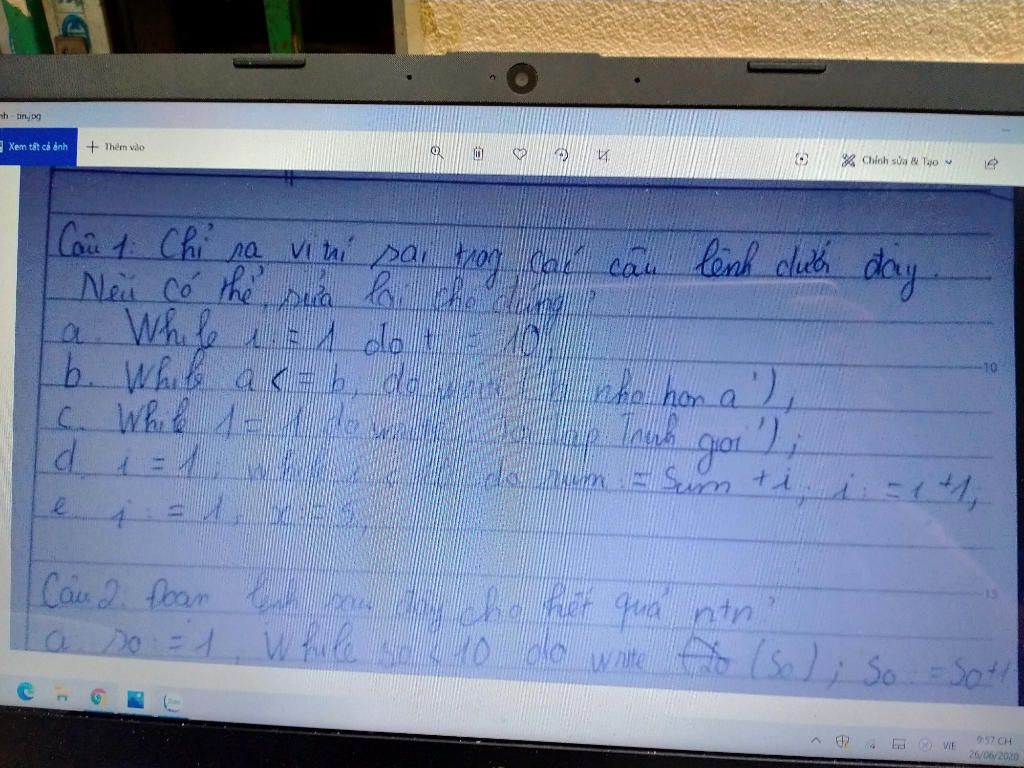 nh - tin.jpg
Xem tất cả ảnh
Thêm vào
Chỉnh sửa & Tạo
Câu 1: Chỉ ra vị trí sai trong các câu lệnh dưới đây.
Nếu có thể, sửa lại cho đúng?
a. While i := 1 do t := 10;
b. While a <= b, do write ('b nho hon a');
c. While 1 = 1 do write lap trinh gioi');
d. i = 1, while i < 10 do sum := Sum + i; i := i + 1;
e. i := 1; x :=
10
Câu 2. Đoạn lệnh sau đây cho kết quả ntn?
15
a. so := 1, While so < 10 do write (So); So := So + 1
VIE
9:57 CH
26/06/2020